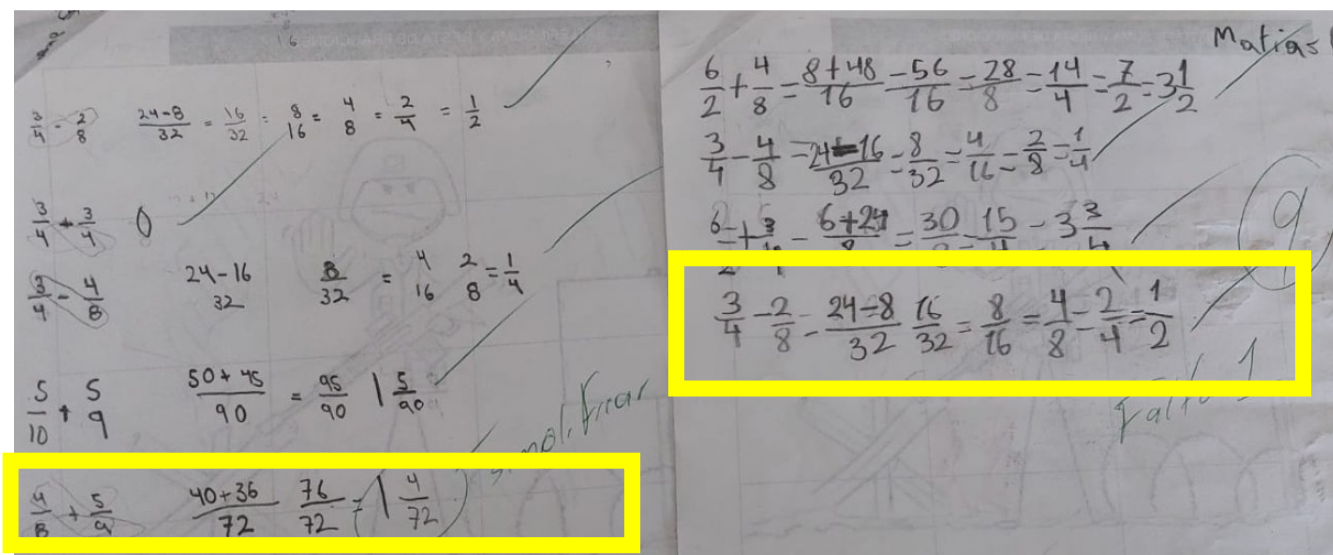 3/4 - 2/8 24-8/32 = 16/32 = 8/16 = 4/8 = 2/4 = 1/2
3/4 + 3/4 0
3/4 - 4/8 24-16/32 8/32 = 4/16 2/8 = 1/4
5/10 + 5/9 50+45/90 = 95/90 1 5/90
4/8 + 5/9 40+36/72 76/72 = 1 4/72
Simplificar
Matias
6/2 + 4/8 = 8+48/16 = 56/16 = 28/8 = 14/4 = 7/2 = 3 1/2
3/4 - 4/8 = 24-16/32 = 8/32 = 4/16 = 2/8 = 1/4
6/2 + 3/4 = 6+24/8 = 30/8 = 15/4 = 3 3/4
9
3/4 - 2/8 = 24-8/32 16/32 = 8/16 = 4/8 = 2/4 = 1/2
Faltó 1